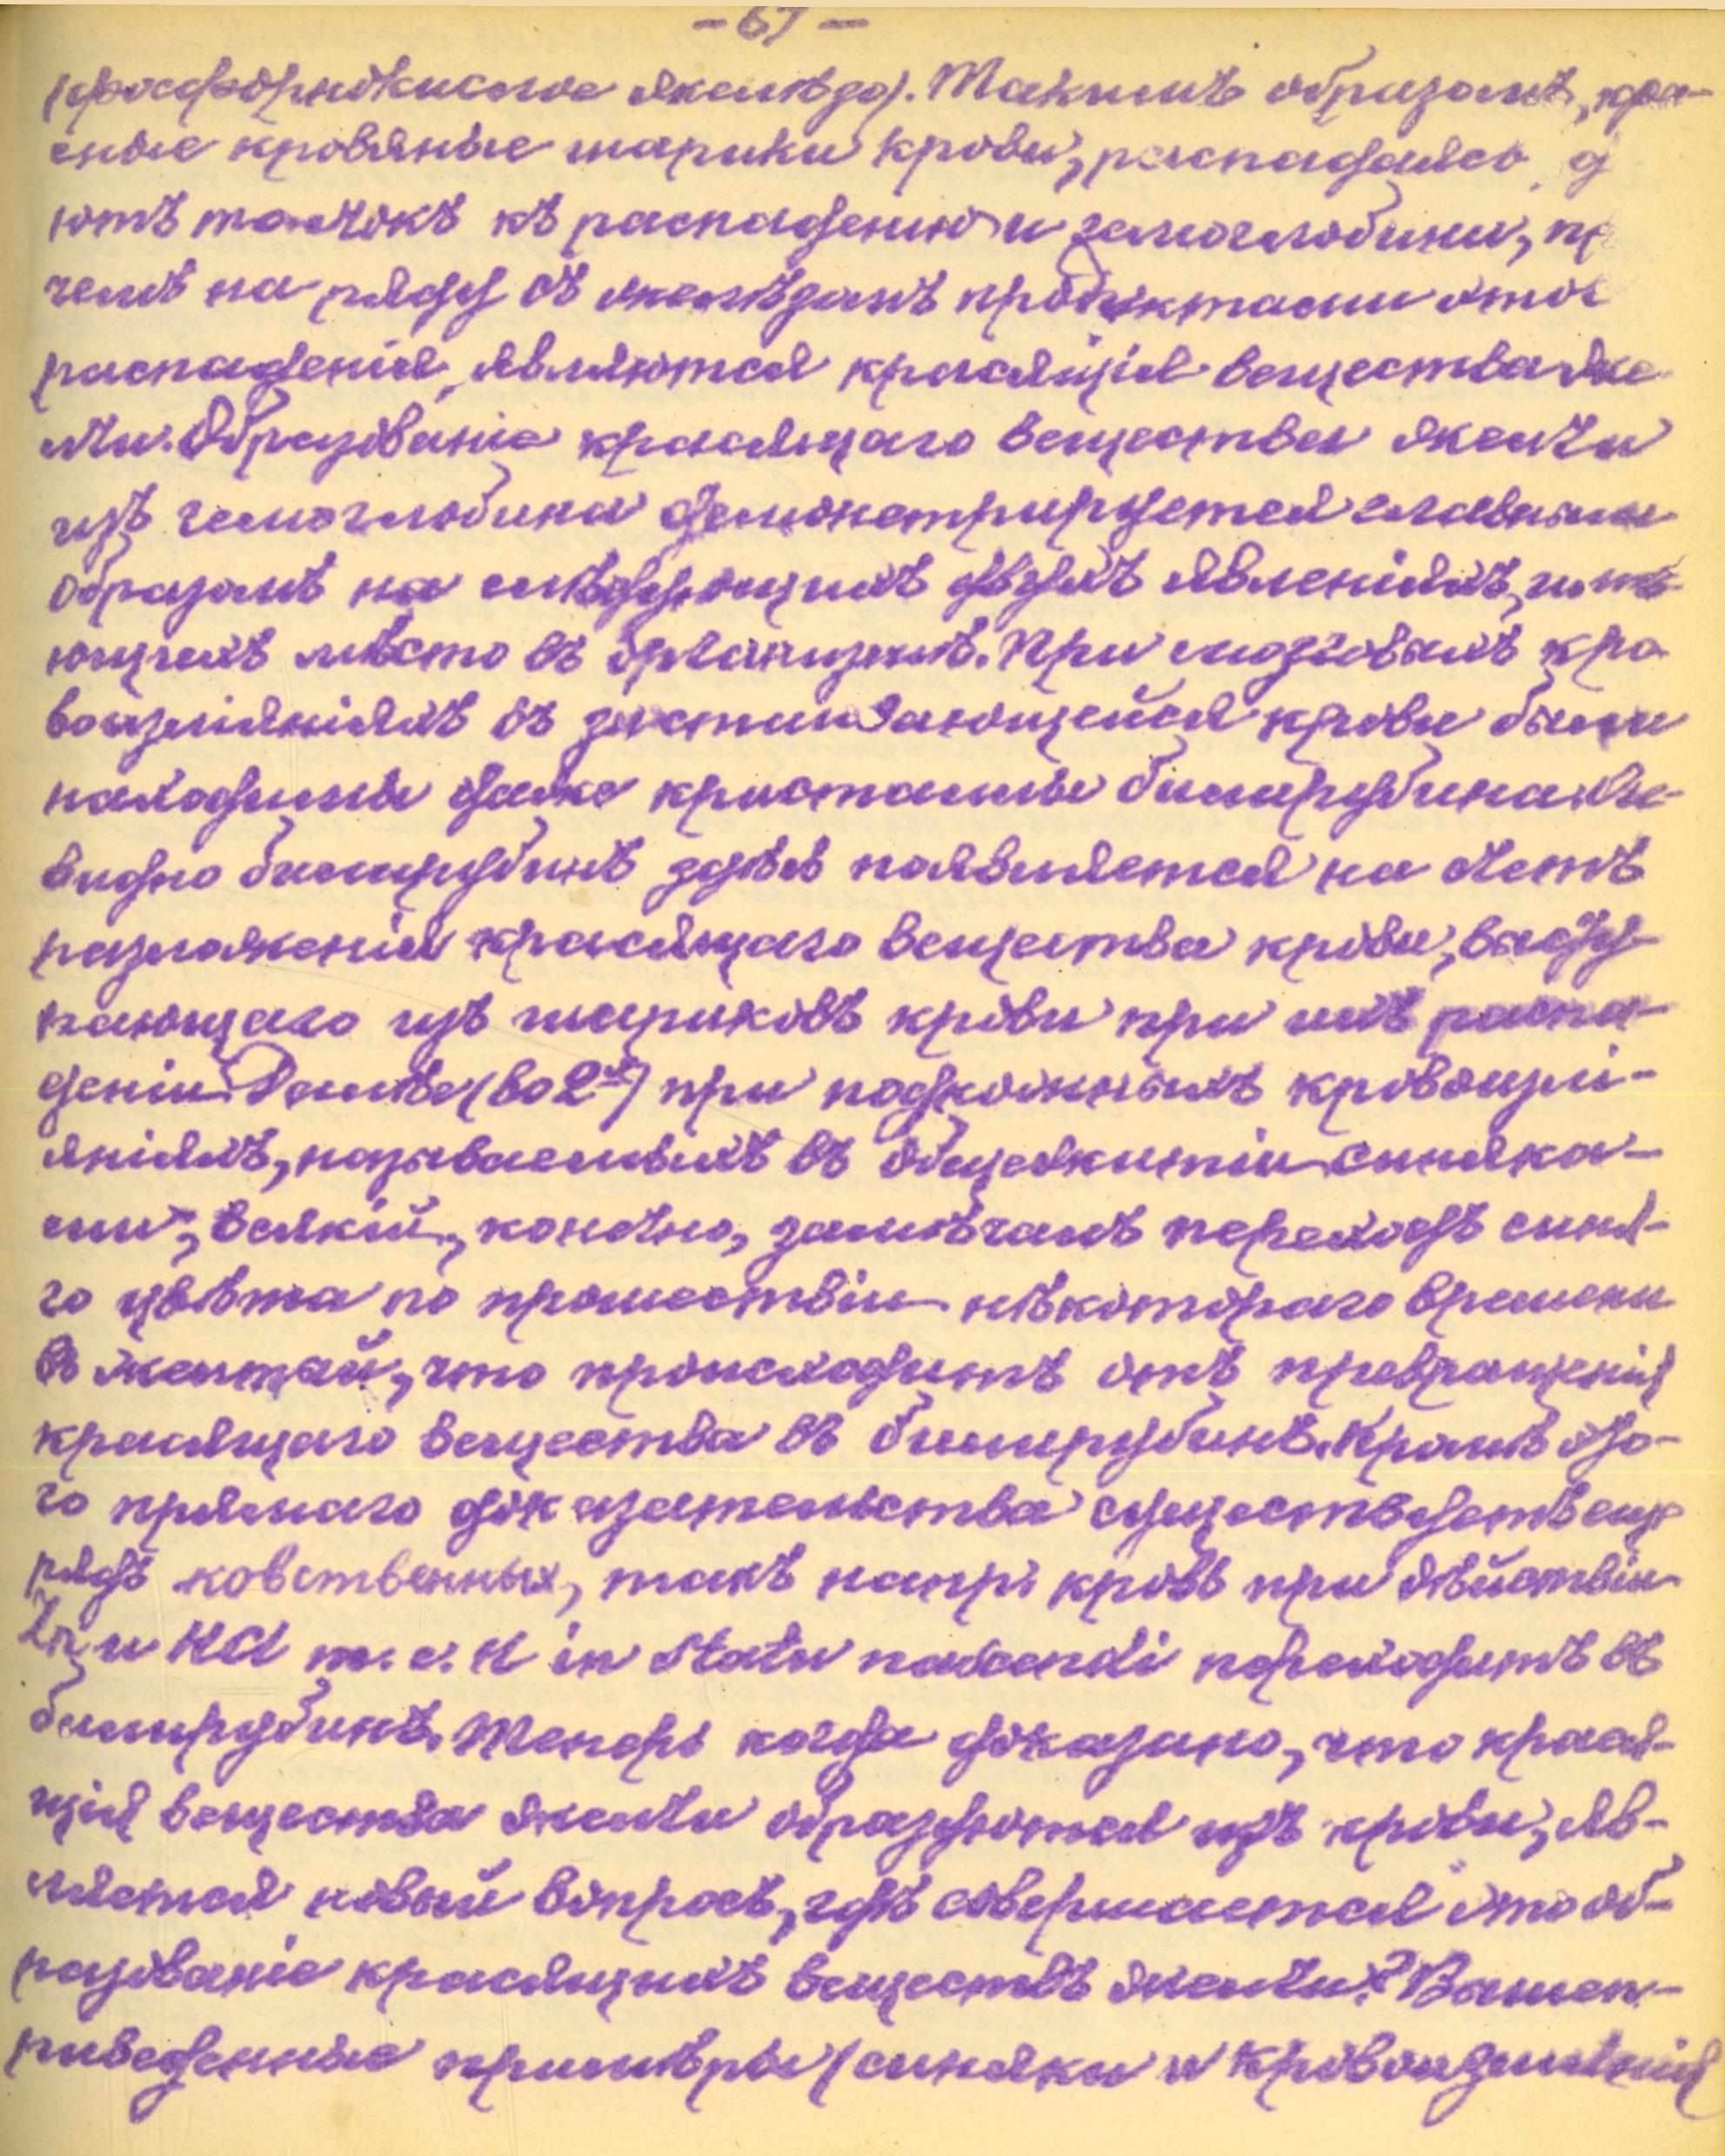 – 67 –
(фосфорнокислое желѣзо). Такимъ образомъ, кра-
сные кровяные шарики крови, распадаясь, д
ютъ толчокъ къ распаденію и гемоглобина, пр
чемъ на ряду съ желѣзомъ продуктами этог
распаденія, являются красящія вещества же
лчи. Образованіе красящаго вещества желчи
изъ гемоглобина демонстрируется главнымъ
образомъ на слѣдующихъ двухъ явленіяхъ, имѣ-
ющихъ мѣсто въ организмѣ. При мозговыхъ кро
воизліяніяхъ въ застаивающейся крови были
находимы даже кристаллы билирубина. Оче-
видно билирубинъ здѣсь появляется на счетъ
разложенія красящаго вещества крови, высту-
пающаго изъ шариковъ крови при ихъ распа-
деніи. Далѣе (во 2хъ) при подкожныхъ кровоизлі-
яніяхъ, называемыхъ въ общежитіи „синяка-
ми“, всякій, конечно, замѣчалъ переходъ синя-
го цвѣта по прошествіи нѣкотораго времени
въ желтый, что происходитъ отъ превращенія
красящаго вещества въ билирубинъ. Кромѣ это-
го прямаго доказательства существуетъ еще
рядъ косвенныхъ, такъ напр. кровь при дѣйствіи
Zn и HCl т. е. H in statu nascendi переходитъ въ
билирубинъ. Теперь когда доказано, что крася-
щія вещества желчи образуются изъ крови, яв-
ляется новый вопросъ, гдѣ совершается это об-
разованіе красящихъ веществъ желчи? Вышеп-
риведенные примѣры (синяки и кровоизліянія